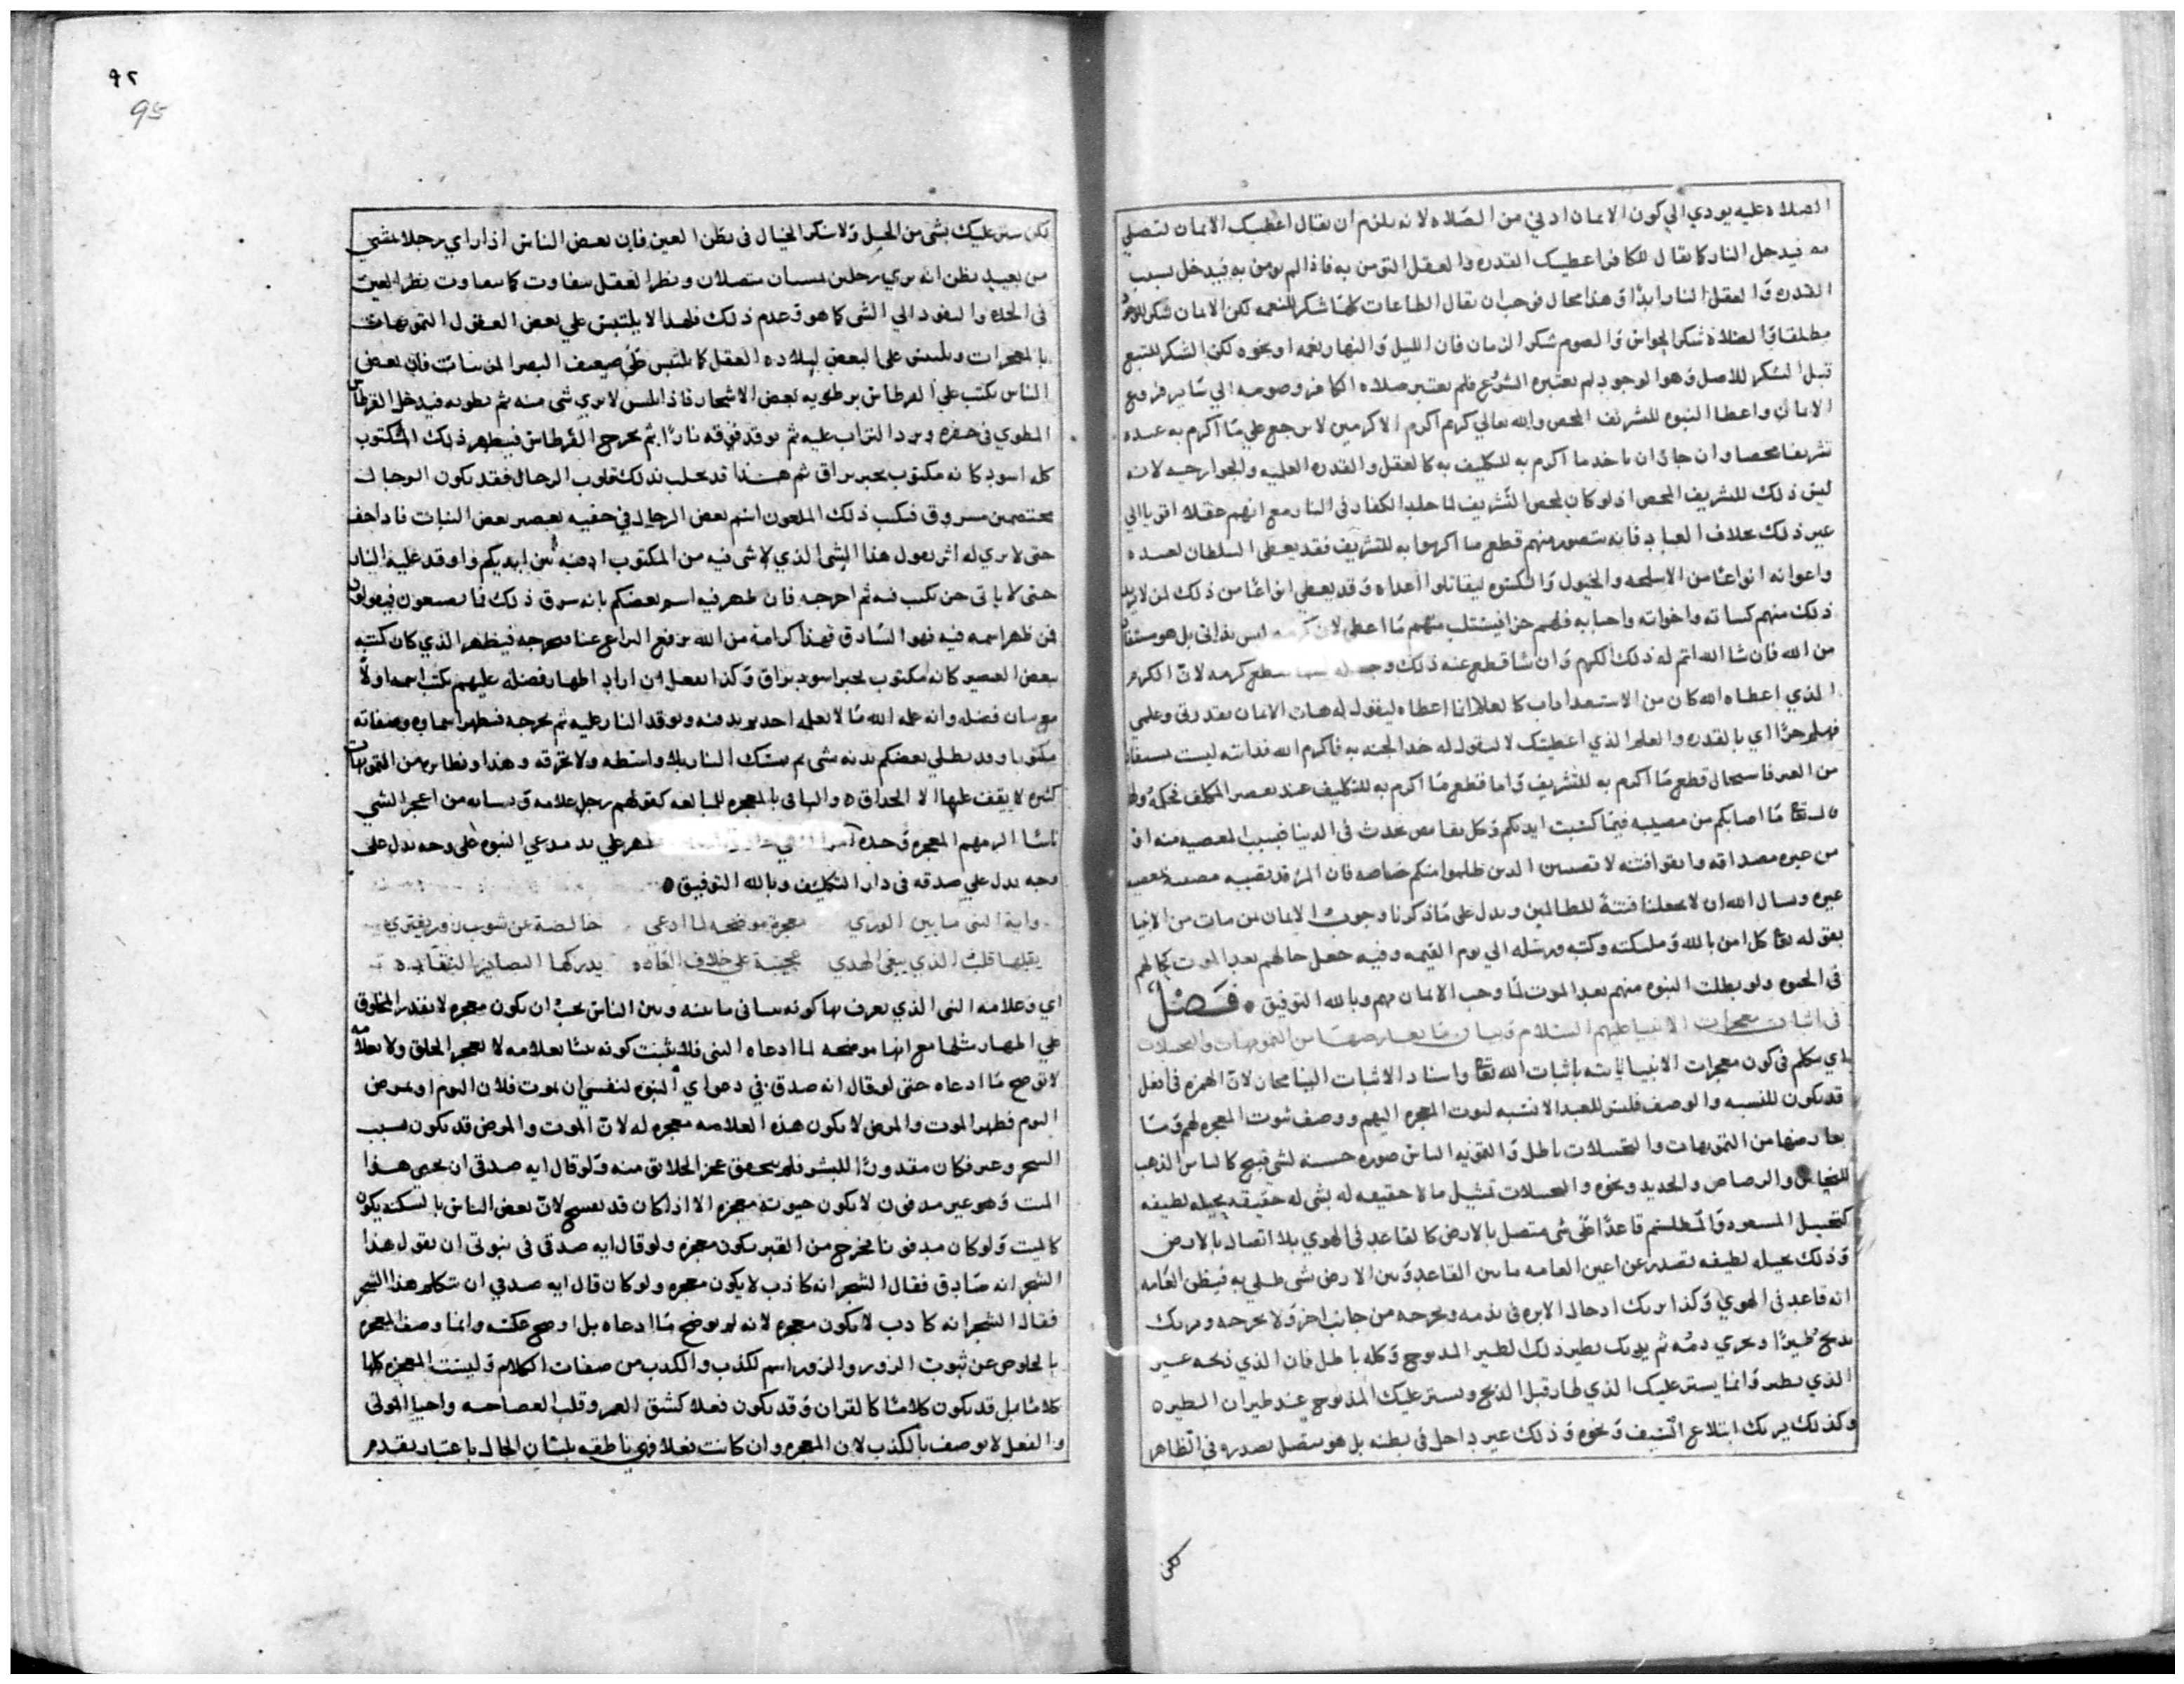 الصلاه عليه يودي الي كون الايمان ادني من الصلاه لانه يلزم ان يقال اعطيتك الايمان لتصلي
به فيدخل النار كما يقال للكافر اعطيتك القدره والعقل لتومن به فاذا لم يومن به فيدخل بسبب
القدره والعقل النار ابدًا وهذا محال فوجب ان يقال الطاعات كلها شكر للنعمه لكن الايمان شكر
مطلقا والصلاة شكر الحواس والصوم شكر الزمان فان الليل والنهار نعمه او نحوه لكن الشكر للتبع
قبل الشكر للاصل وهو الوجود لم يعتبره الشرع فلم يعتبر صلاه الكافر وصومه الي ساير فروع
الايمان واعطا النبوه للتشريف المحض والله تعالي كريم اكرم الاكرمين لا يرجع علي ما اكرم به عبده
تشريفا محضا وان جاز ان ياخذ ما اكرم به للتكليف به كالعقل والقدره العلميه والجوارحيه لانه
ليس ذلك للتشريف المحض اذ لو كان لمحض التشريف لما خلد الكفار في النار مع انهم عقلا اقويا الي
غير ذلك بخلاف العباد فانه يتصور منهم قطع ما اكرموا به للتشريف فقد يعطي السلطان لعبده
واعوانه انواعًا من الاسلحه والخيول والكسوه ليقاتلوا اعداه وقد يعطي انواعًا من ذلك لمن لا يريد
ذلك منهم كنسائه واخواته واحبابه فلهم جزا فيستلب منهم ما اعطي لان كرمه ليس بذاتي بل هو مستفاد
من الله فان شا الله اتم له ذلك الكرم وان شا قطع عنه ذلك كرمه لان الكرم
الذي اعطاه الله كان من الاستعدادات كالعلم انما اعطاه ليقول له هات الايمان بقدرتي وعلمي
فهلم جرًا اي بالقدره والعلم الذي اعطيتك لا ليقول له خذ الجنه به فاكرم الله فذاته ليست بمستفاد
من الغير فاستحال قطع ما اكرم به للتشريف واما قطع ما اكرم به للتكليف عند بعض المكلف فحكمه
تعا ما اصابكم من مصيبه فبما كسبت ايديكم وكل نقايص تحدث في الدنيا فبسبب المعصيه منه او
من غيره مصداقه واتقوا فتنه لا تصيبن الذين ظلموا منكم خاصه فان المرء قد تصيبه مصيبه بمعصيه
غيره ونسال الله ان لا يجعلنا فتنة للظالمين ويدل علي ما ذكرنا وجوب الايمان بمن مات من الانبيا
بقوله تعا كل امن بالله وملئكته وكتبه ورسله الي يوم القيمه وفيه جعل حالهم بعد الموت كحالهم
في الحيوه ولو بطلت النبوه منهم بعد الموت لما وجب الايمان بهم وبالله التوفيق ٥ فصل
في اثبات معجزات الانبيا عليهم السلام وبيان ما يعارضها من التمويهات والتخييلات
اي نتكلم في كون معجزات الانبيا ثابته باثبات الله تعا واسناد الاثبات الينا مجاز لان الهمزه في افعل
قد يكون للنسبه والوصف فليس للعبد الا نسبه ثبوت المعجزه اليهم ووصف ثبوت المعجزه لهم وما
يعارضها من التمويهات والتخييلات باطل والتمويه الباس صوره حسنه لشي قبيح كالباس الذهب
للنحاس والرصاص والحديد ونحوه والتخييلات تمثيل ما لا حقيقه له بشي له حقيقه بحيله لطيفه
كتخييل المشعوذ والمطلسم قاعدًا علي شي متصل بالارض كالقاعد في الهوي بلا اتصال بالارض
وذلك بحيله لطيفه تصدر عن اعين العامه ما بين القاعد وبين الارض شي طلي به فيظن العامه
انه قاعد في الهوي وكذا يريك ادخال الابره في بدنه ويخرجه من جانب اخر ولا يخرجه ويريك
يذبح طيرًا ويجري دمه ثم يريك يطير ذلك الطير المذبوح وكله باطل فان الذي ذبحه غير
الذي يطير وانما يستر عليك الذي طار قبل الذبح ويستر عليك المذبوح عند طيران الطيره
وكذلك يريك ابتلاع السيف ونحوه وذلك غير داخل في بطنه بل هو متصل بصدره في الظاهر
لكن
٩٢
95
لكن ستر عليك بشي من الحيل ولا ينكر الخيال في نظر العين فان بعض الناس اذا راي رجلا يمشي
من بعيد يظن انه يري رجلين يمشيان متصلان ونظر العقل يتفاوت كما يتفاوت نظر العين
في الحده والنفود الي الشي كما هو وعدم ذلك فلهذا لا يلتبس علي بعض العقول التمويهات
بالمعجزات ويلتبس علي البعض لبلاده العقل كما يلتبس علي ضعيف البصر المرئيات فان بعض
الناس يكتب علي القرطاس برطوبه بعض الاشجار فاذا لبس لا يري شي منه ثم يطويه فيدخل القرطاس
المطوي في حفره ويرد التراب عليه ثم يوقد فوقه نارًا ثم يخرج القرطاس فيظهر ذلك المكتوب
كله اسود كانه مكتوب بحبر براق ثم هذا قد يجلب بذلك قلوب الرجال فقد يكون الرجال
مختصمين مسروق فكتب ذلك الملعون اسم بعض الرجال في خفيه بعصير بعض النبات فاذا جف
حتي لا يري له اثر يقول هذا الشي الذي لا شي فيه من المكتوب ادفنه بين ايديكم واوقد عليه النار
حتي لا ياتي جن يكتب فيه ثم اخرجه فان ظهر فيه اسم بعضكم بانه سرق ذلك فما تصنعون فيقولون
فمن ظهر اسمه فيه فهو السارق فهذا كرامة من الله برفع النزاع عنا فيخرجه فيظهر الذي كان كتبه
ببعض العصير كانه مكتوب بحبر اسود براق وكذا يفعل من اراد اظهار فضله عليهم يكتب اسمه اولًا
مع بيان فضله وانه علمه الله ما لا يعلمه احد يريد منه ويوقد النار عليه ثم يخرجه فيظهر اسماوه وصفاته
مكتوبا وقد يطلي بعضكم بدنه بشي ثم يمسك النار بلا واسطه ولا تحرقه وهذا ونظايره من التمويهات
كثيره لا يقف عليها الا الحذاق ٥ والها في المعجزه للمبالغه كقولهم رجل علامه ونسابه من اعجز الشي
ناسًا الزمهم المعجزه وحده امر ظهر علي يد مدعي النبوه علي وجه يدل علي
وجه يدل علي صدقه في دار التكليف وبالله التوفيق ٥
واية النبي ما بين الوري معجزة موضحه لما ادعي خالصة عن شوب زور يفتري
يقبلها قلب الذي يبغي الهدي عجيبة علي خلاف العاده يدركها البصاير النقاده
اي وعلامه النبي الذي يعرف بها كونه نبيا في ما بينه وبين الناس يجب ان يكون معجزه لا يقدر المخلوق
علي اظهار مثلها مع انها موضحه لما ادعاه النبي فلا يثبت كونه نبيا بعلامه لا يعجز الخلق ولا بعلامة
لا توضح ما ادعاه حتي لو قال انه صدقي في دعواي النبوه لنفسي ان يموت فلان اليوم او يمرض
اليوم فظهر الموت والمرض لا يكون هذه العلامه معجزه له لان الموت والمرض قد يكون بسبب
السحر وغيره فكان مقدورًا للبشر فلم يتحقق عجز الخلايق منه ولو قال ايه صدقي ان يحيي هذا
الميت وهو غير مدفون لا يكون حيوته معجزه الا اذا كان قد تفسخ لان بعض الناس بالسكته يكون
كالميت ولو كان مدفونا فخرج من القبر يكون معجزه ولو قال ايه صدقي في نبوتي ان يقول هذا
الشجر انه صادق فقال الشجر انه كاذب لا يكون معجزه ولو كان قال ايه صدقي ان يتكلم هذا الشجر
فقال الشجر انه كاذب لا يكون معجزه لانه لم يوضح ما ادعاه بل اوضح عكسه وانما وصف المعجزه
بالخلوص عن ثبوت الزور والزور اسم للكذب والكذب من صفات الكلام وليست المعجزه كلها
كلامًا بل قد يكون كلامًا كالقران وقد يكون فعلا كشق القمر وقلب العصا حيه واحيا الموتي
والفعل لا يوصف بالكذب لان المعجزه وان كانت فعلا فهي ناطقه بلسان الحال باعتبار تقدم